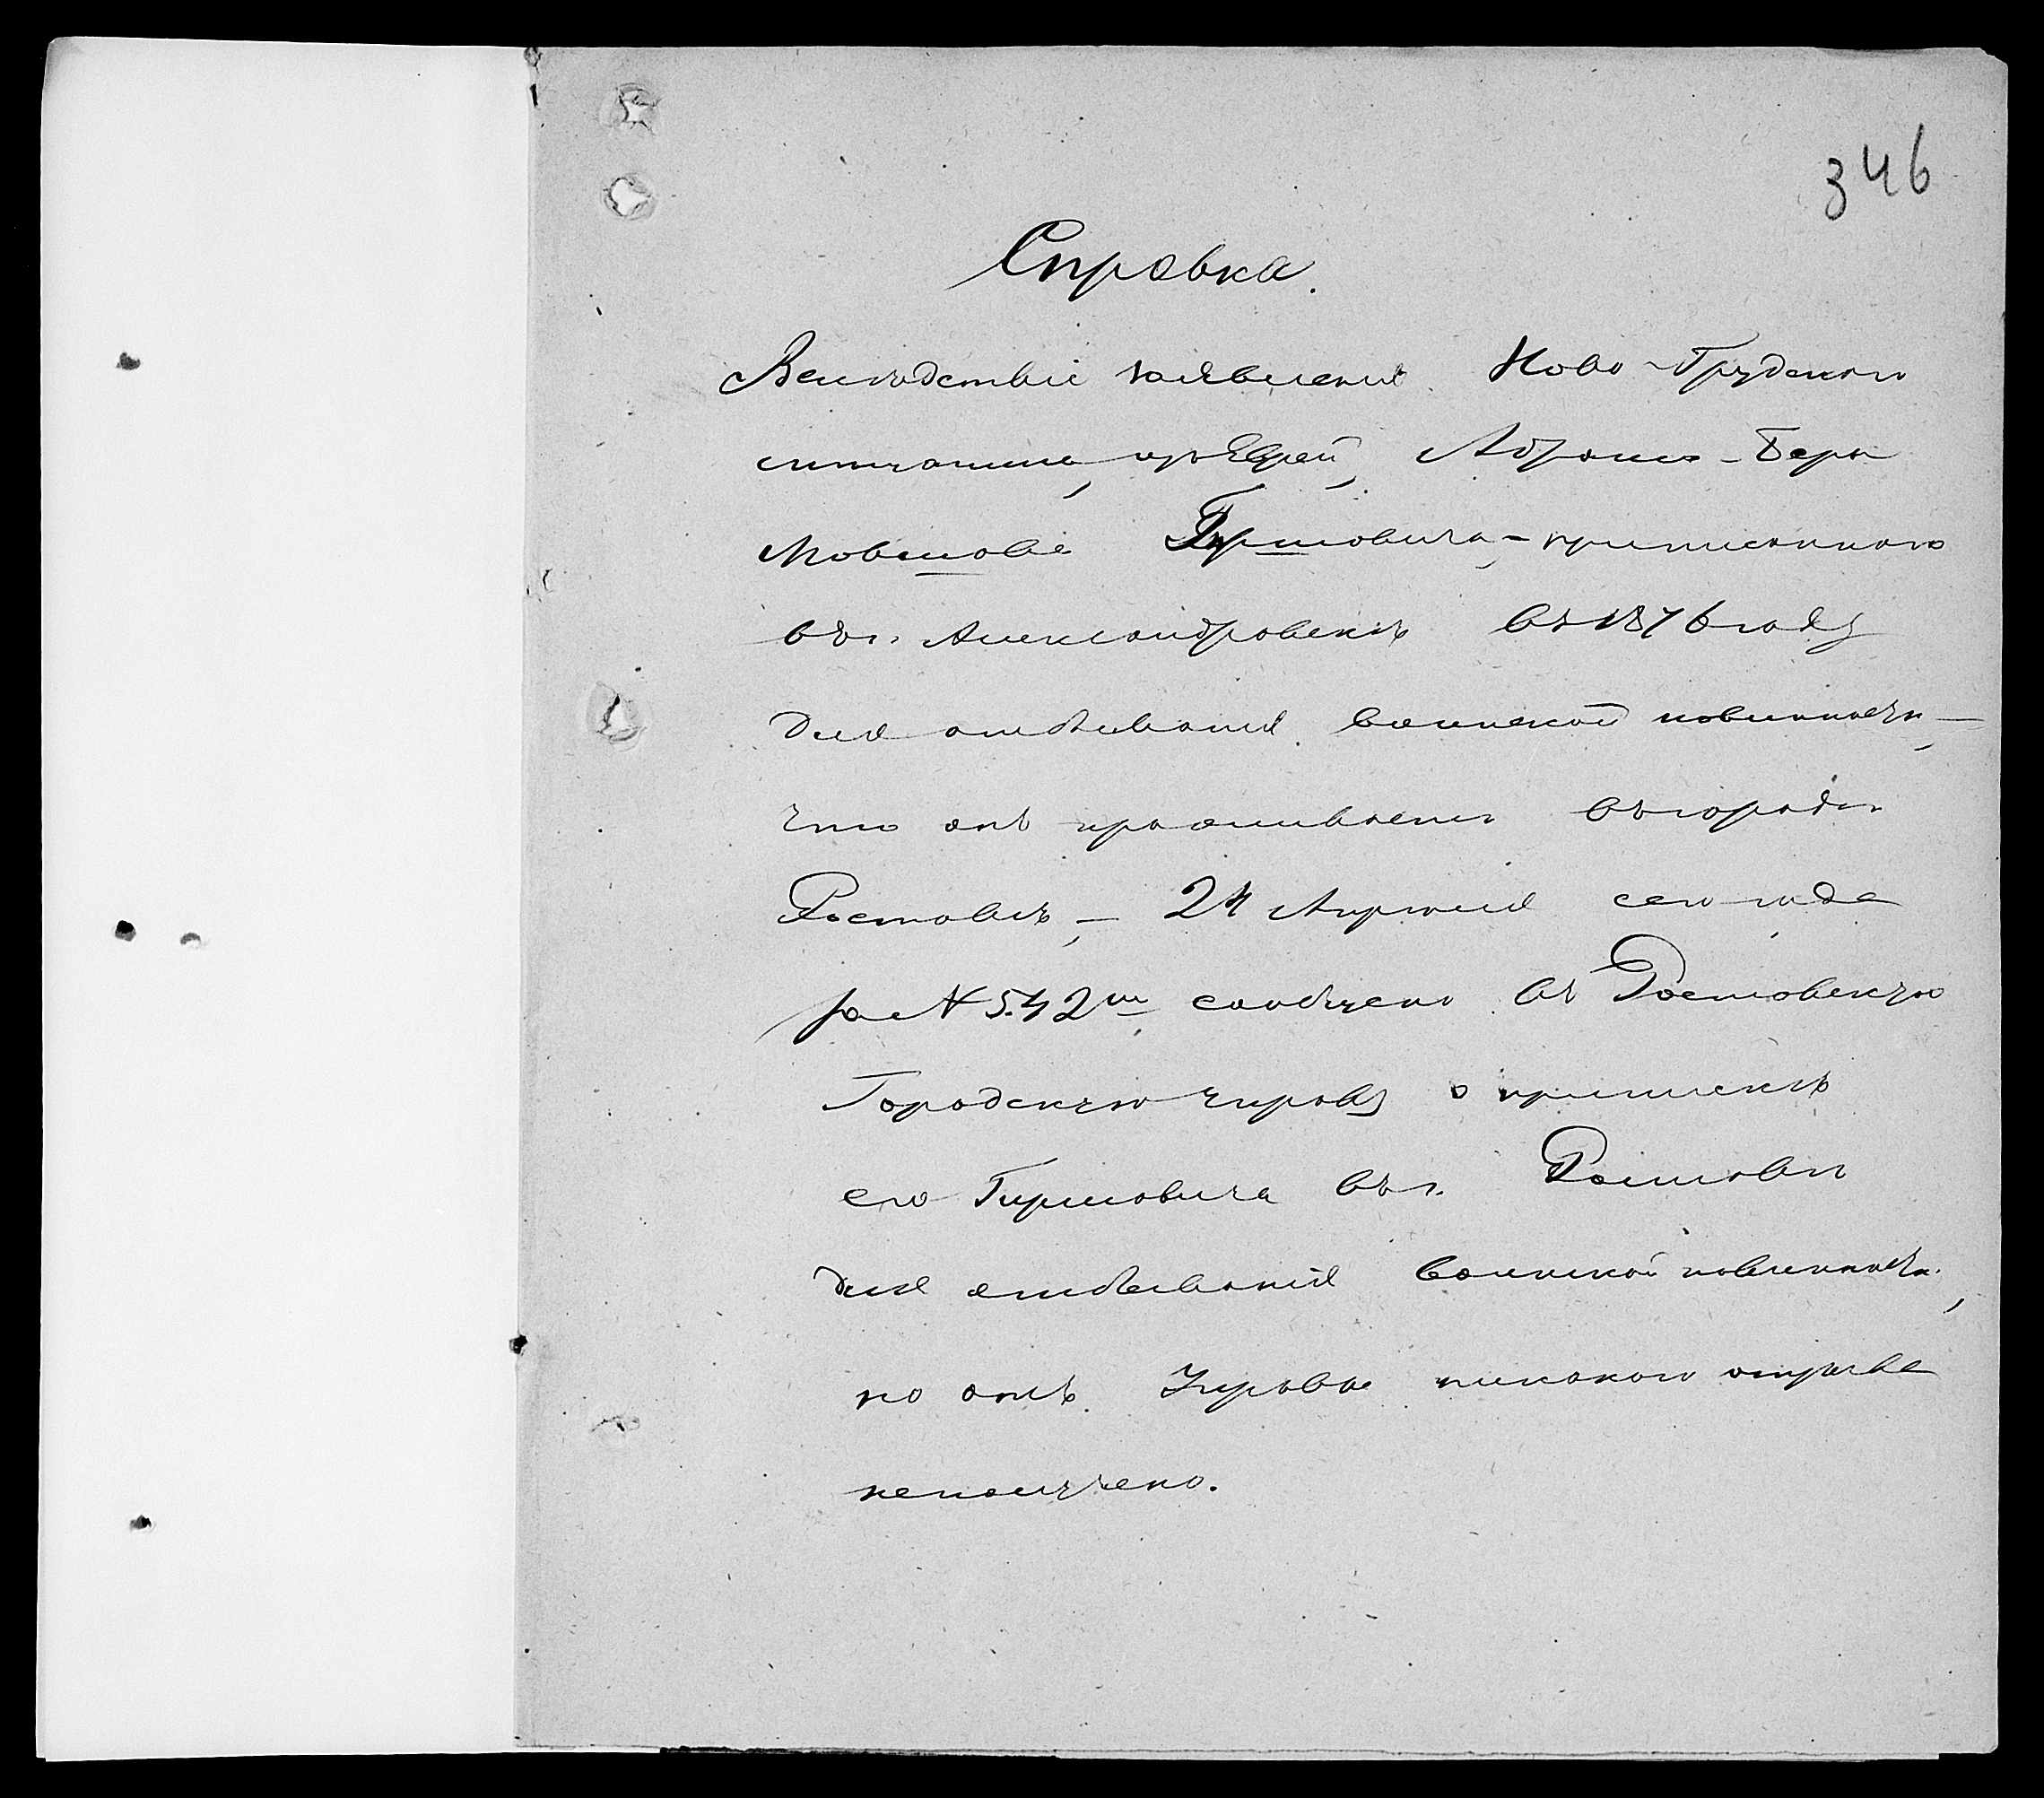 346
Справка.
Вслѣдствіе заявленія Ново-Грудскаго
мѣщанина, изъ Еврей, Абрама-Бера
Мовшова Гиршовича, - приписаннаго
въ г. Александровскѣ въ 1876 году
для отбыванія воинской повинности, -
что онъ проживаетъ въ городѣ
Ростовѣ, - 24 Апрѣля сего года
за № 542мъ сообщено въ Ростовскую
Городскую Управу о припискѣ
его Гиршовича въ г. Ростовѣ
для отбыванія воинской повинности,
но отъ Управы никакого отзыва
неполучено.